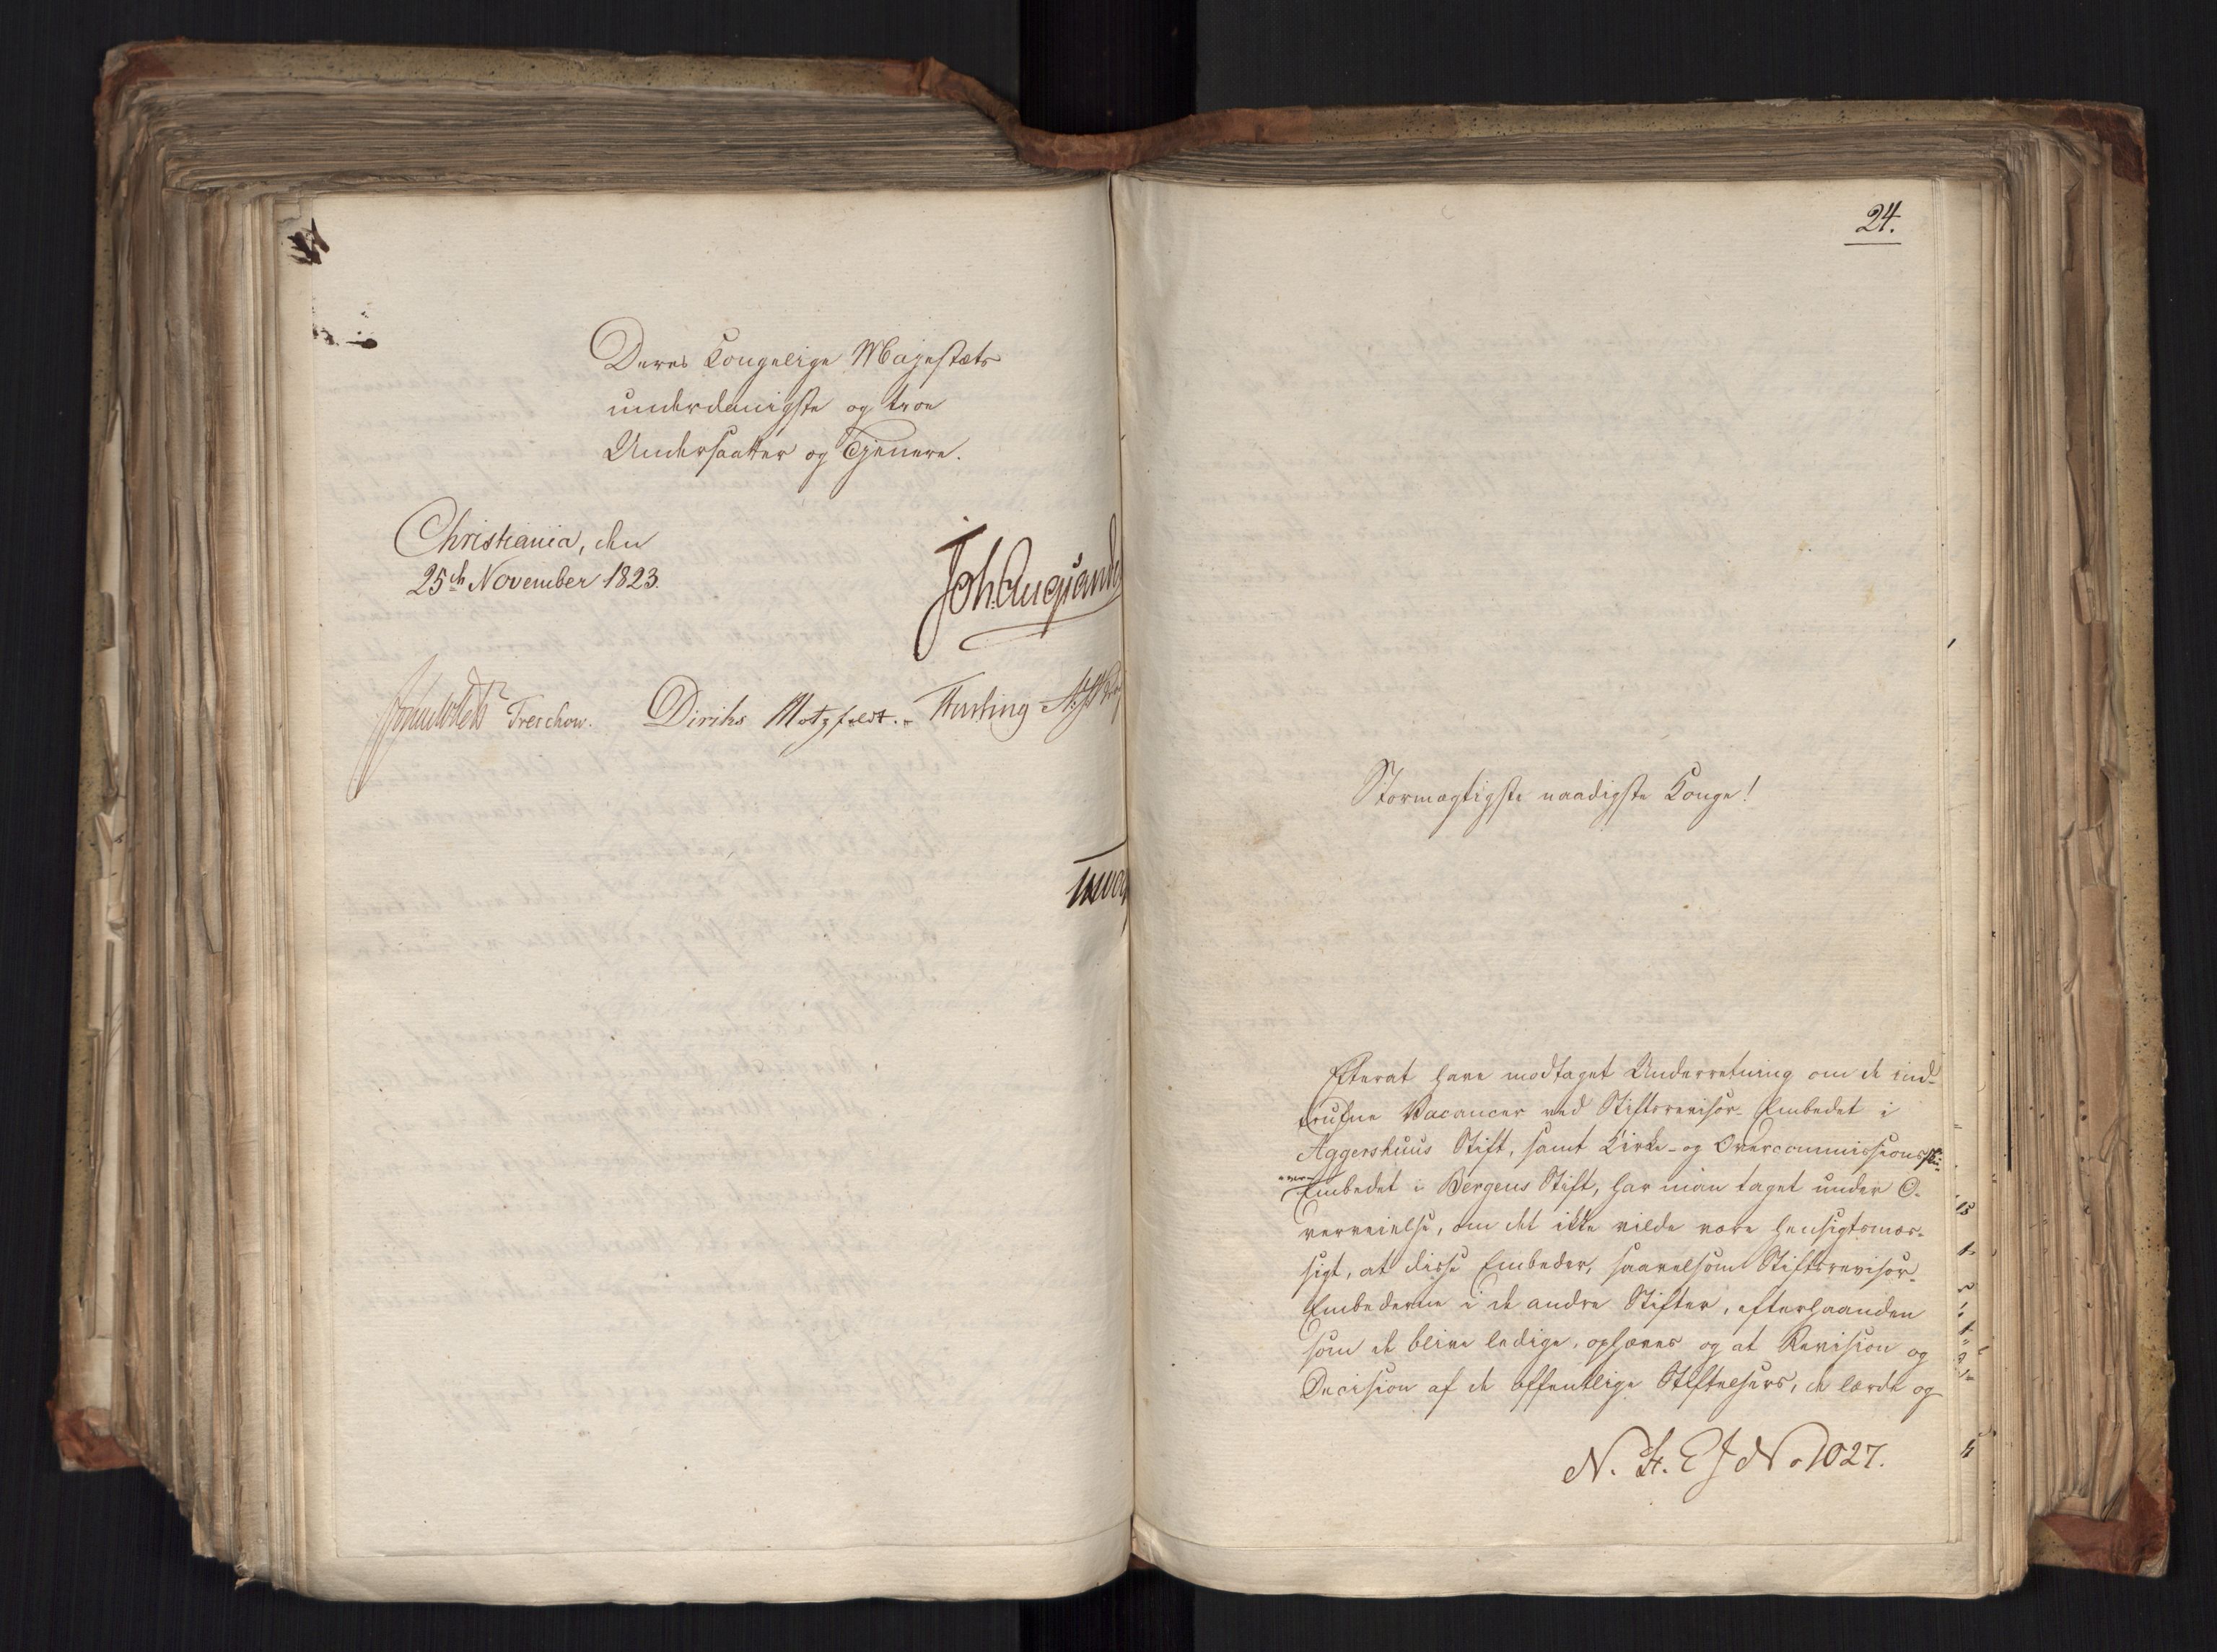 Deres Kongelige Majestæts
underdanigste og troe
Undersaatter og Tjenere.
Christiania, den
25de November 1823.
Joh. Aug. Sand
Sommerhielm Treschow. Diriks Motzfeldt. Fasting
24.
Stormægtigste naadigste Konge!
Efterat have modtaget Underretning om de ind-
trufne Vacancer ved Stiftsrevisor-Embedet i
Aggershuus Stift, samt Kirke- og Overcommissionsskri-
ver-Embedet i Bergens Stift, har man taget under O-
verveielse, om det ikke vilde være hensigtsmæs-
sigt, at disse Embeder, saavelsom Stiftsrevisor-
Embederne i de andre Stifter, efterhaanden
som de blive ledige, ophæves og at Revision og
Decision af de offentlige Stiftelsers, de lærde og
N. H. E J No 1027.